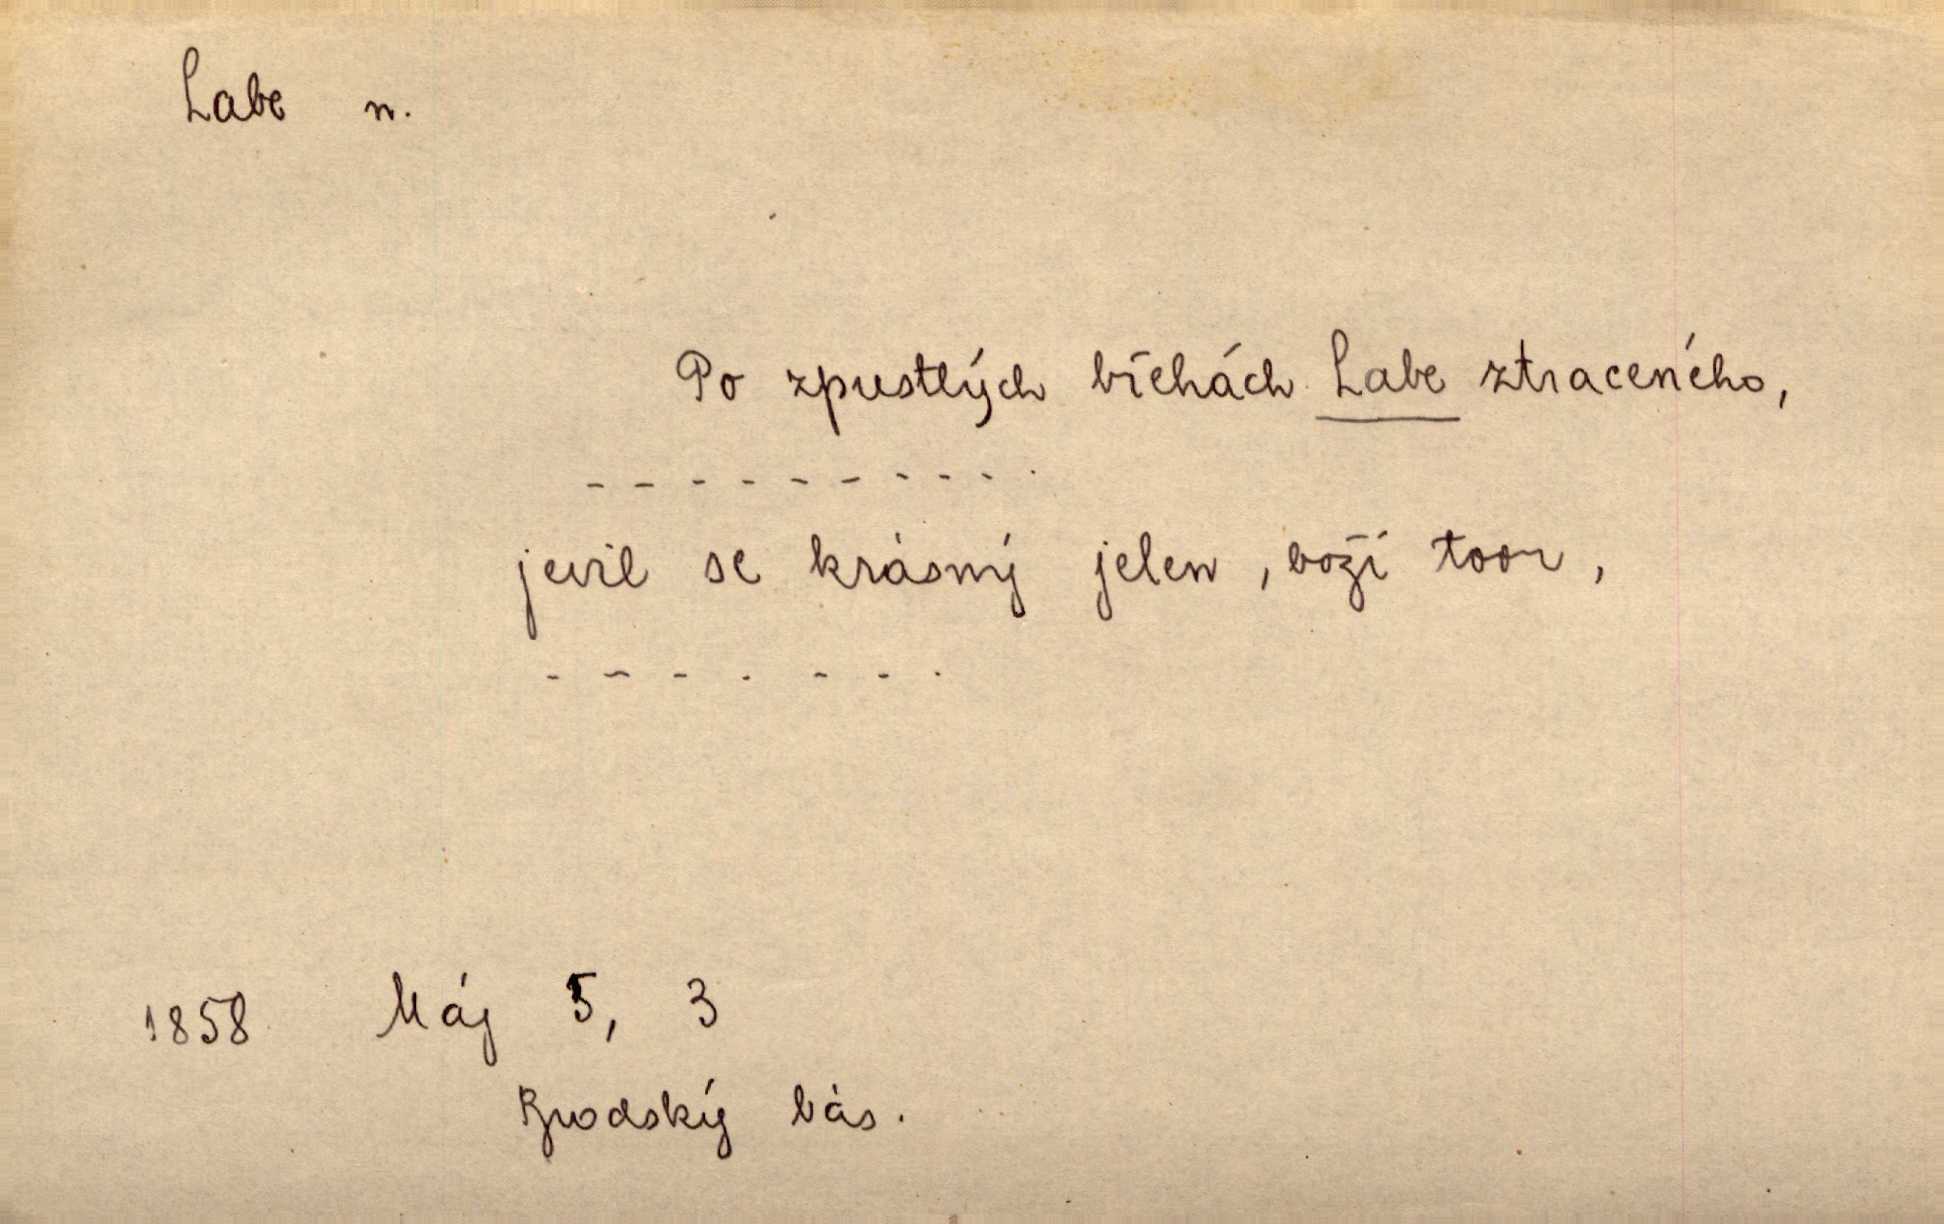 Labe n.
Po zpustlých břehách Labe ztraceného,
- - - - - - - - - .
jevil se krásný jelen, boží tvor,
- - - . - - .
1858 Máj 5, 3
Brodský bás.